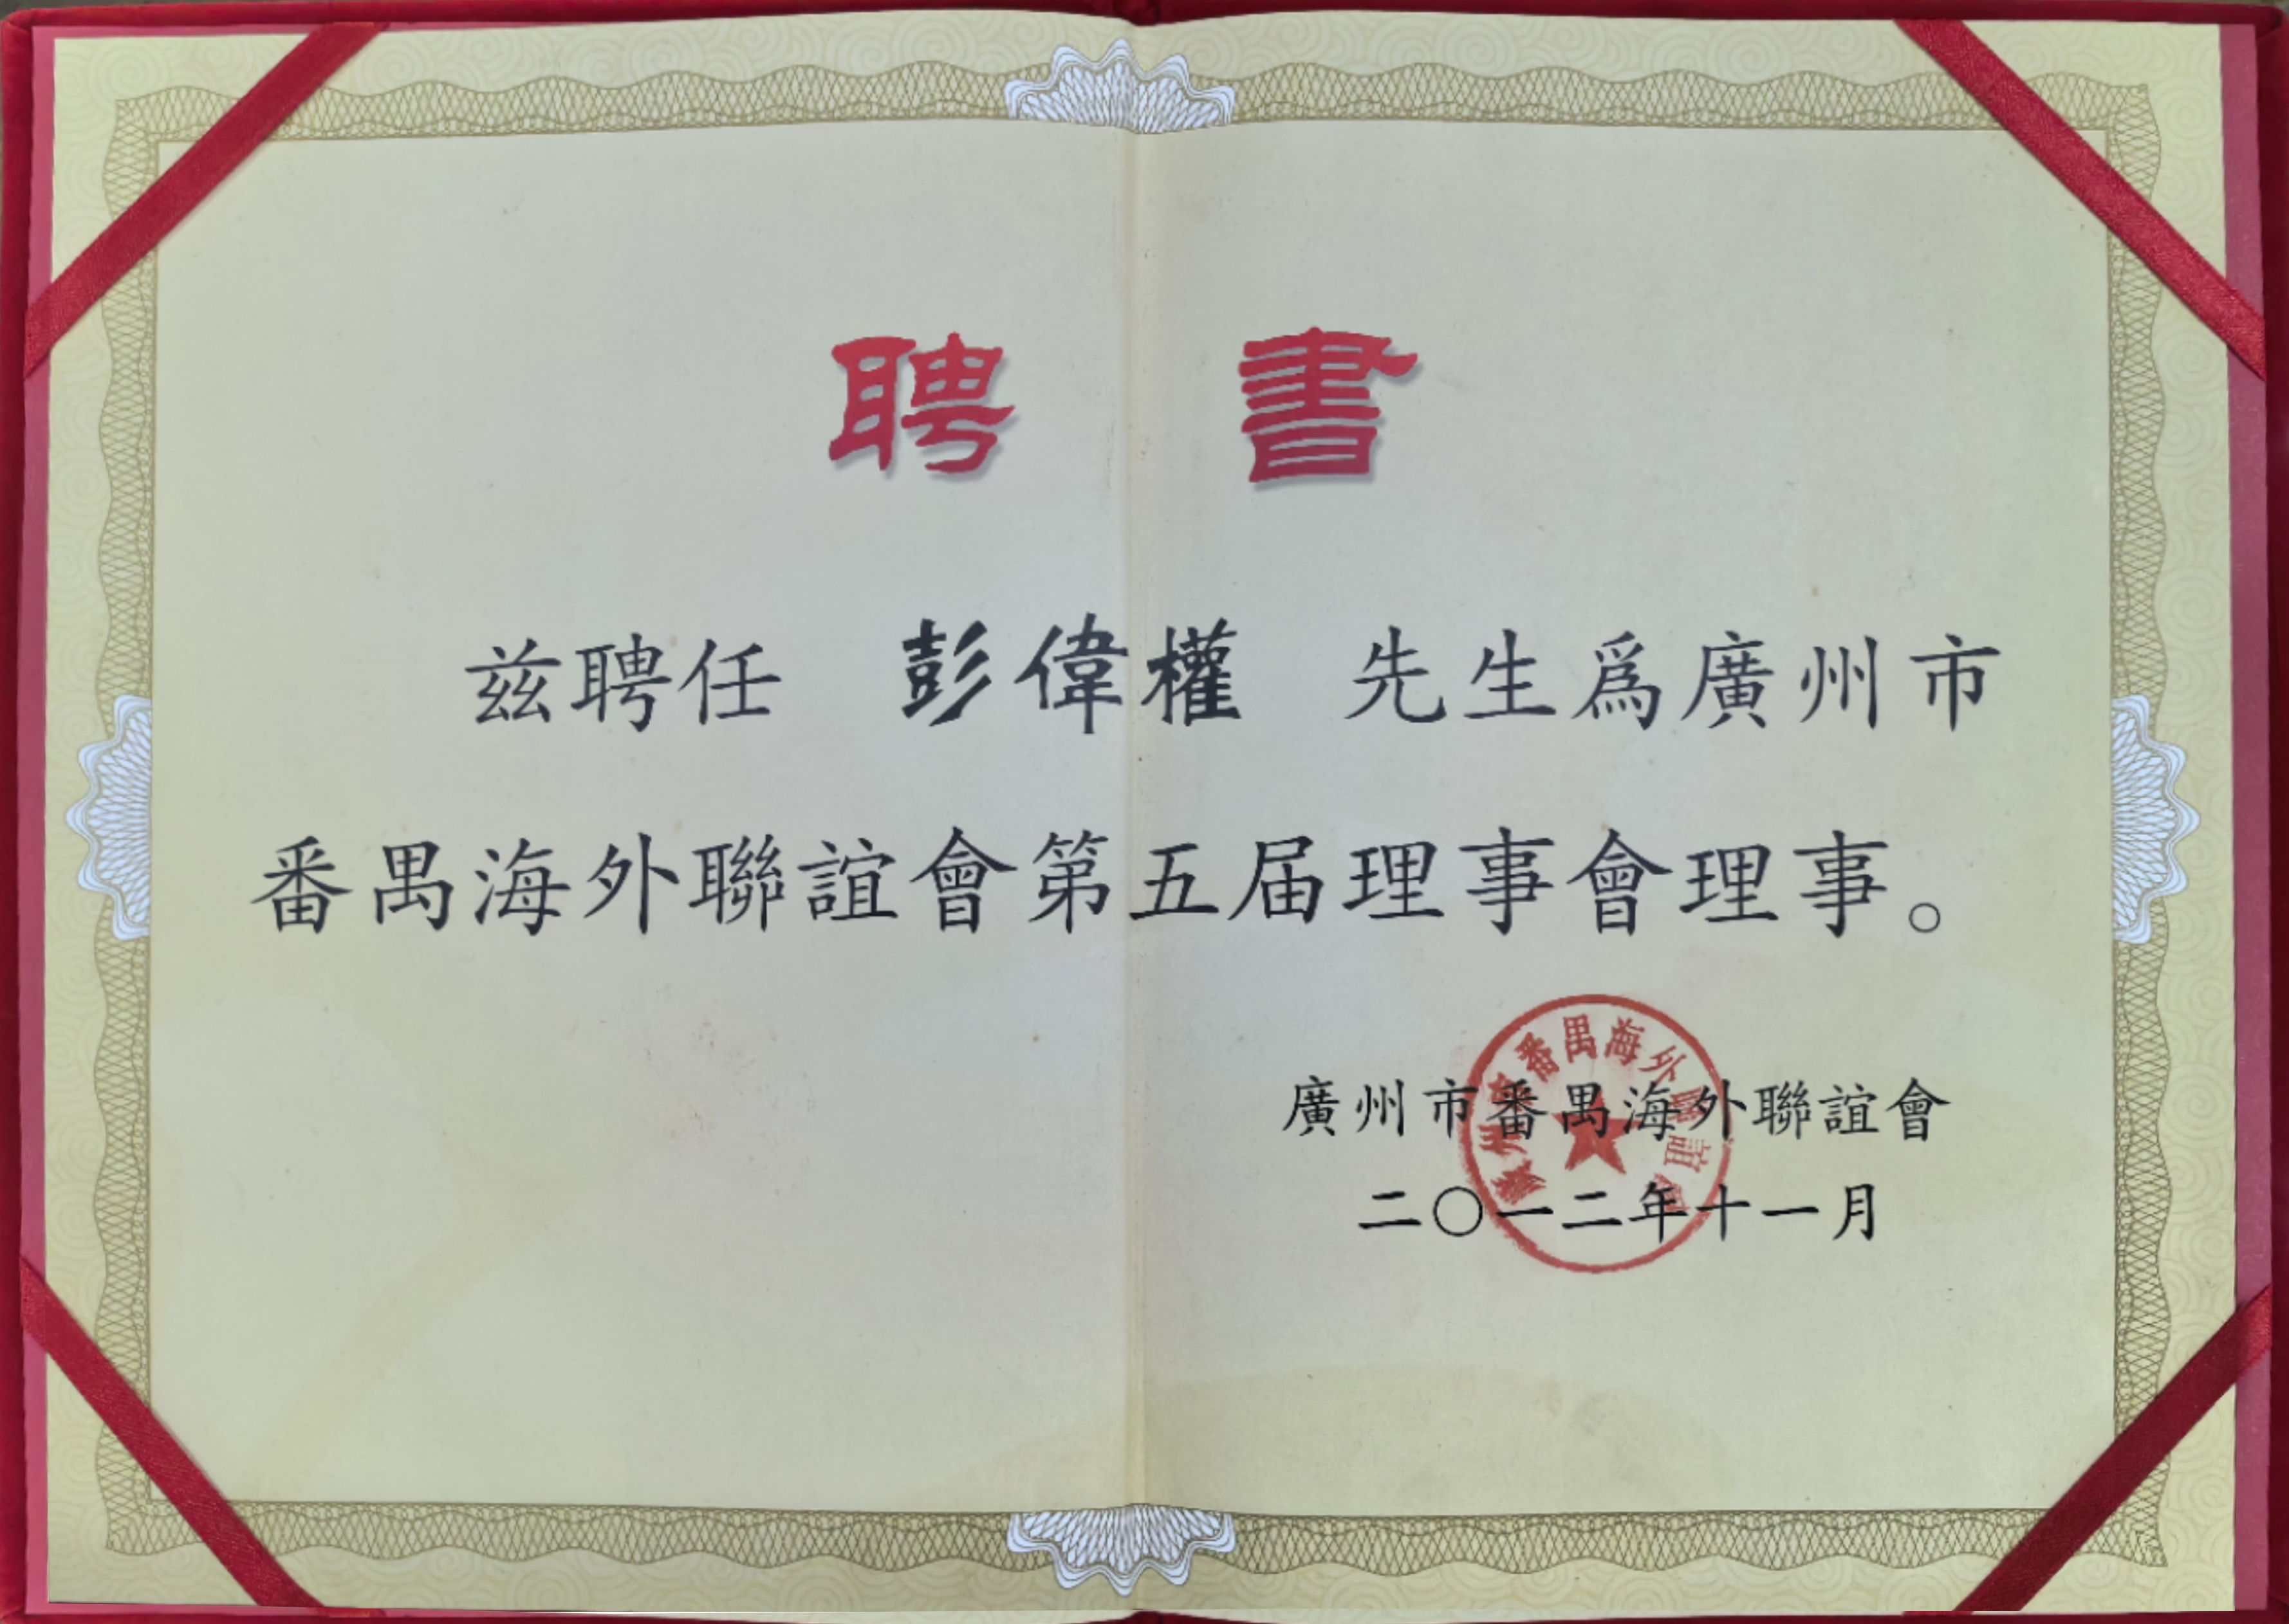 聘書
兹聘任 彭偉權 先生爲廣州市
番禺海外聯誼會第五届理事會理事。
廣州市番禺海外聯誼會
二〇一二年十一月
廣州市番禺海外聯誼會